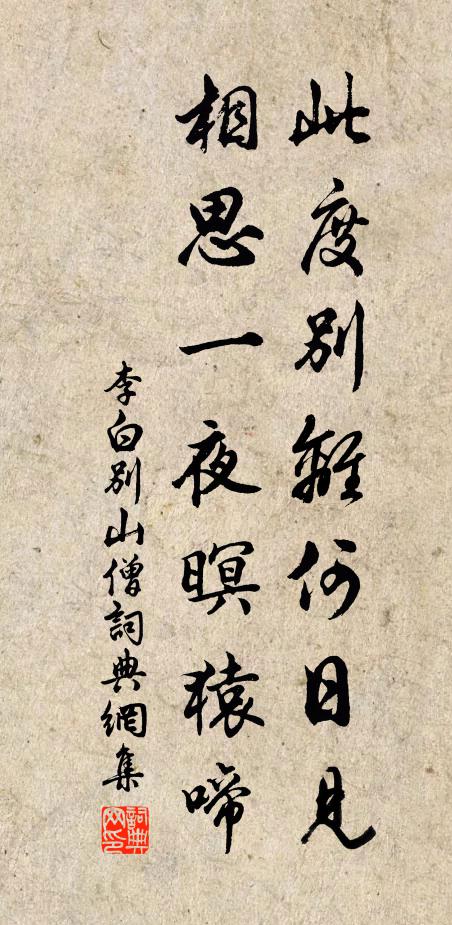 此度別離何日見
相思一夜暝猿啼
李白別山僧詞典網集
詞典网印